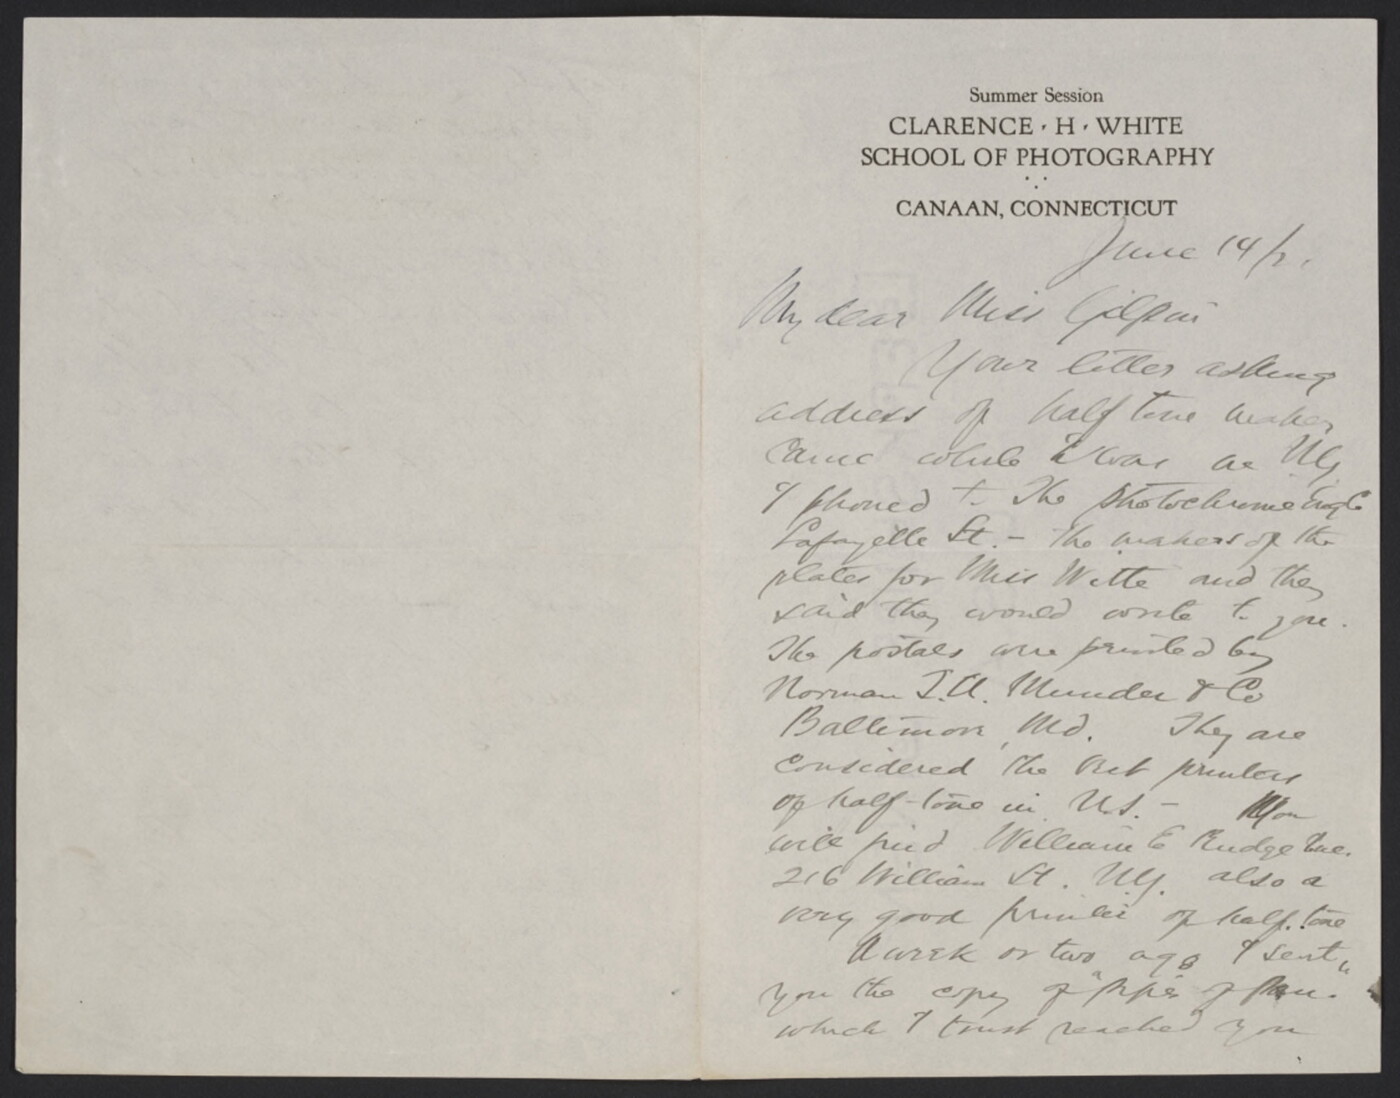 Summer Session
CLARENCE · H · WHITE
SCHOOL OF PHOTOGRAPHY
CANAAN, CONNECTICUT
June 14/2
My dear Miss Gilpin
Your letter asking
address of half tone maker
came while I was in NY
I phoned to the Photochrome Eng Co
Lafayette St. - the makers of the
plates for Miss Witte and they
said they would write to you.
The postals were printed by
Norman T.A. Munder & Co
Baltimore, Md. They are
considered the best printers
of half-tone in U.S. - You
will find William E Rudge Inc.
216 William St. NY. also a
very good printer of half-tone
A week or two ago I sent
you the copy of "Pipes of Pan"
which I trust reached you